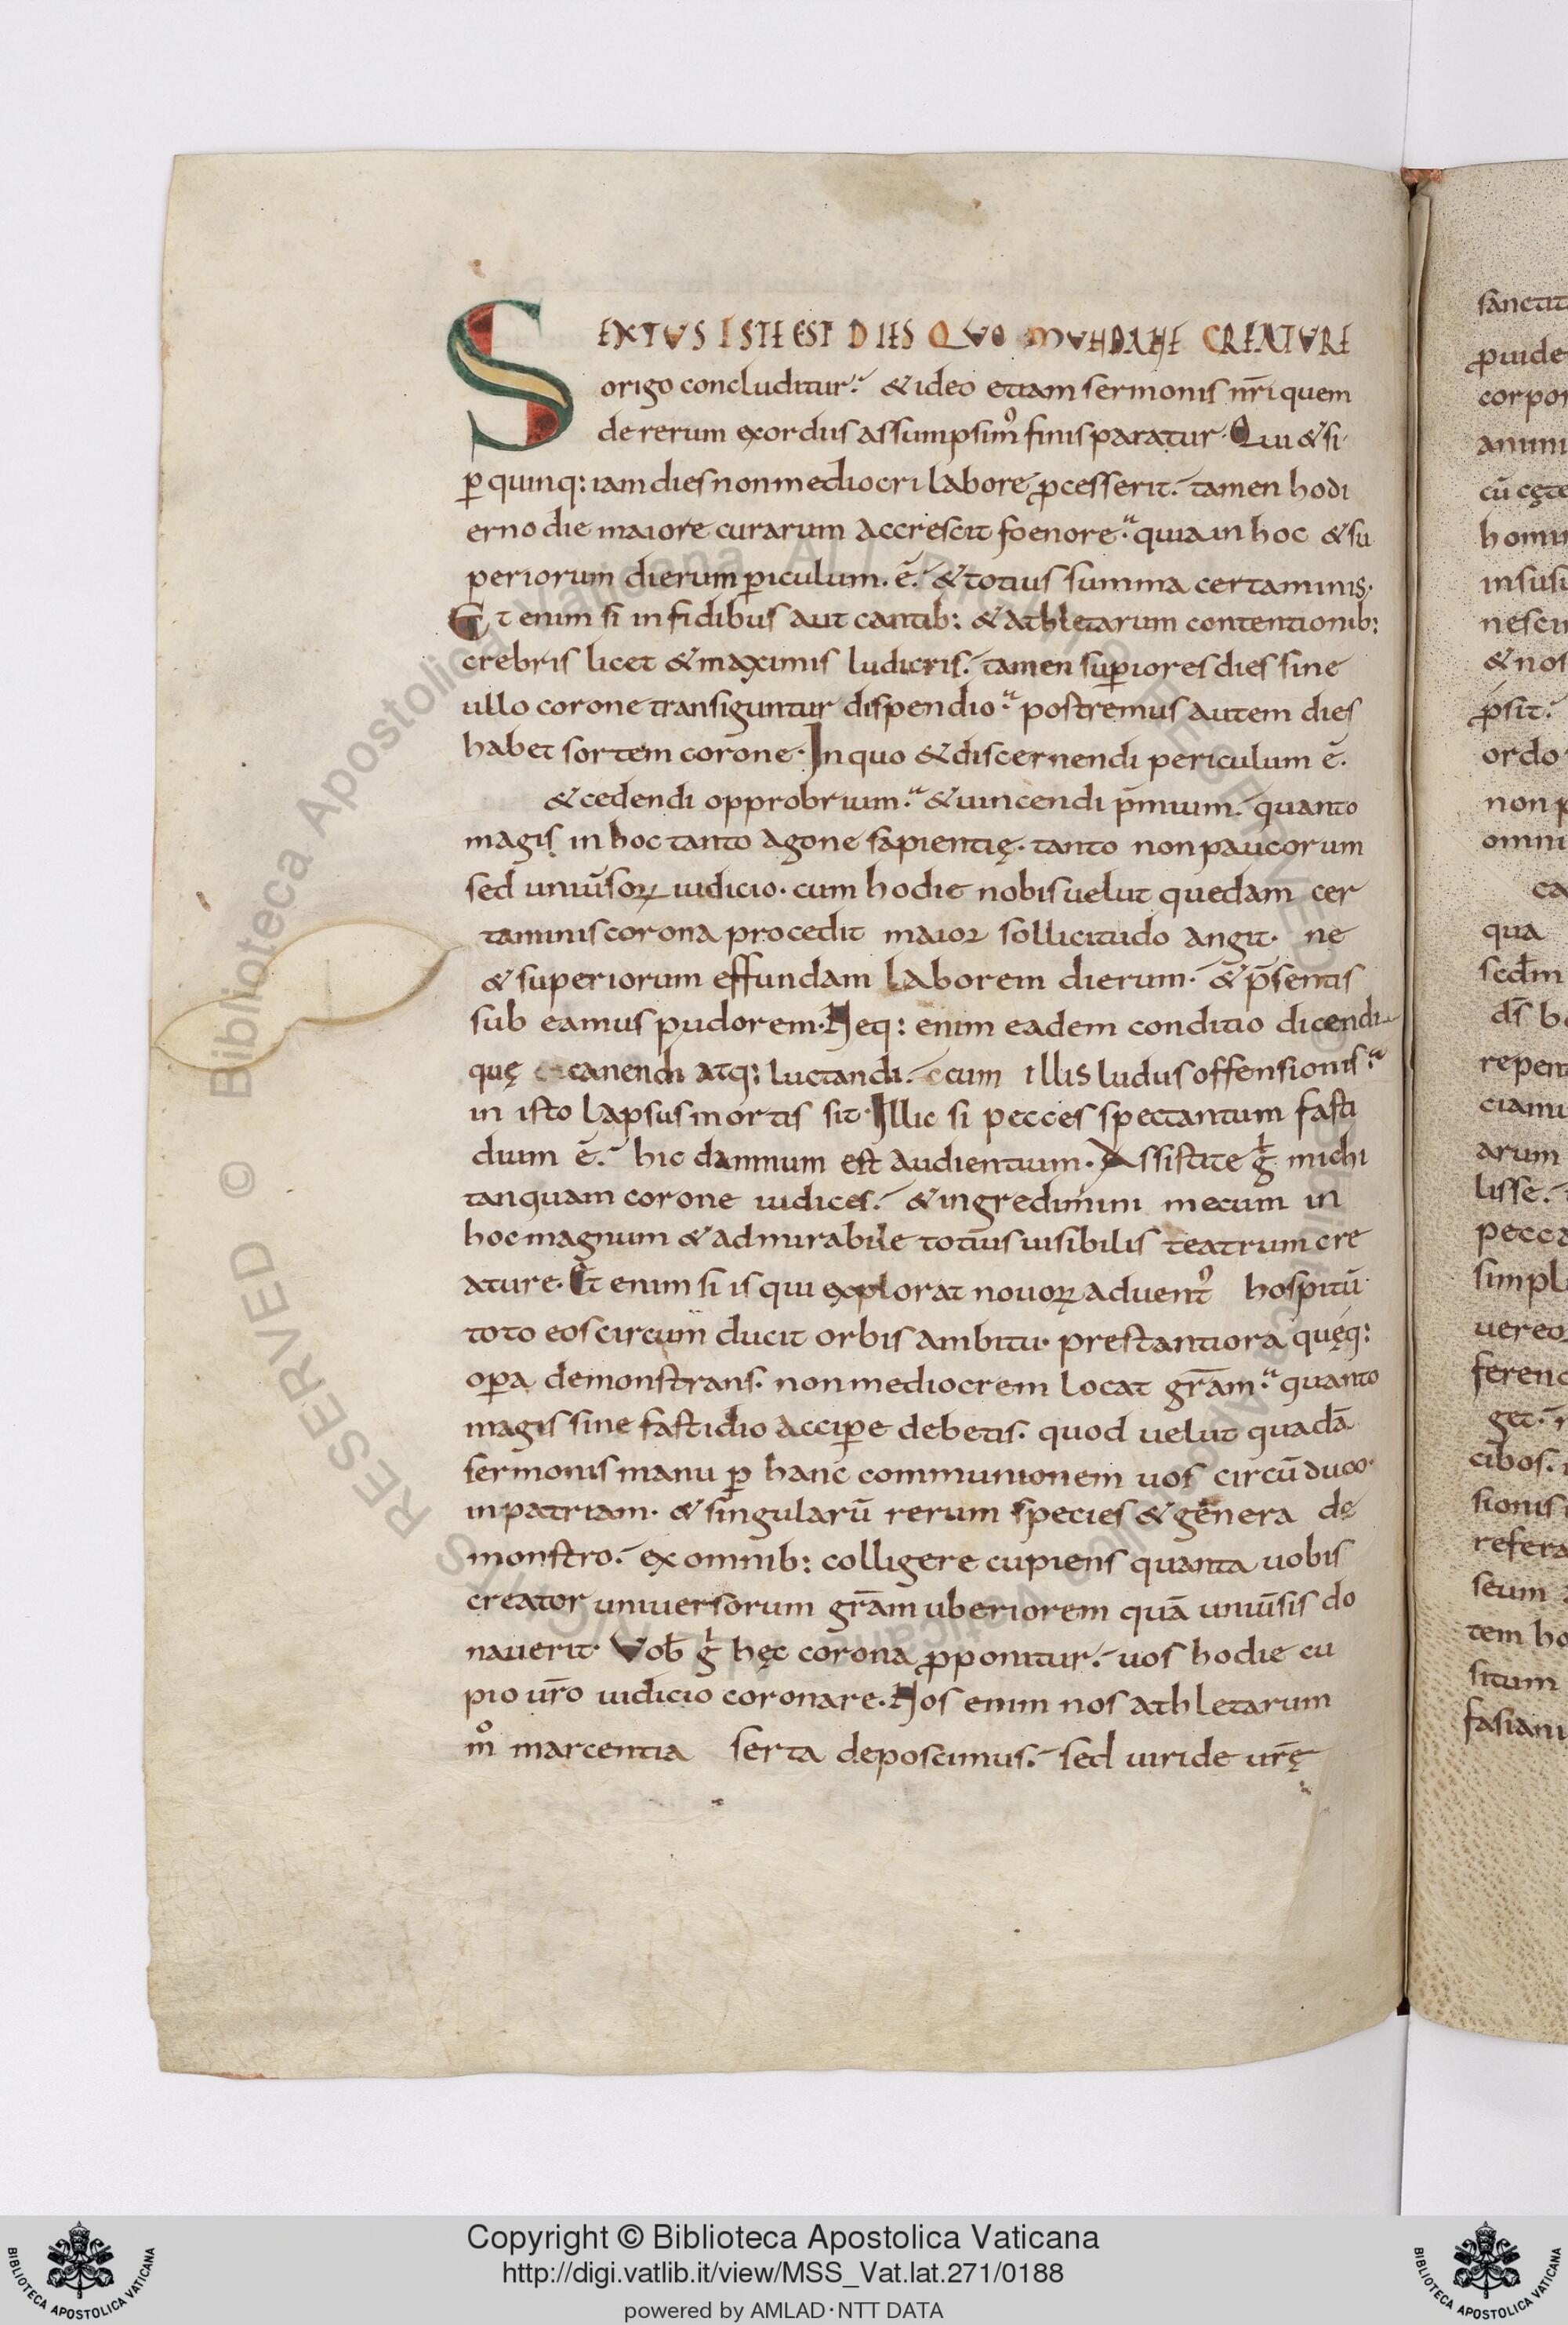 SEXTUS ISTE EST DIES QUO MUNDANE CREATURE
origo concluditur. & ideo etiam sermonis nr̄i quem
de rerum exordiis assumpsim᾿ finis paratur. Qui & si
ꝑ quinq: iam dies non mediocri labore ꝓcesserit. tamen hodi
erno die maiore curarum accrescit foenore. quia in hoc & su
periorum dierum ꝑiculum. ē. & totius summa certaminis.
Et enim si in fidibus aut cantib: & athletarum contentionib:
crebris licet & maximis ludicris. tamen suꝑiores dies sine
ullo corone transiguntur dispendio. postremus autem dies
habet sortem corone. In quo & discernendi periculum ē.
& cedendi opprobrium. & uincendi p̄mium. quanto
magis in hoc tanto agone sapientię. tanto non paucorum
sed uniūsoꝝ iudicio. cum hodie nobis uelut quedam cer
taminis corona procedit maior sollicitudo angit. ne
& superiorum effundam laborem dierum. & p̄sentis
sub eamus pudorem. Neq: enim eadem conditio dicendi
quę canendi atq: luctandi. cum illis ludus offensionis.
in isto lapsus mortis sit. Illic si pecces spectantum fasti
dium ē. hic damnum est audientium. Assistite g̊ michi
tanquam corone iudices. & ingredimini mecum in
hoc magnum & admirabile totius uisibilis teatrum cre
ature. Et enim si is qui explorat nouoꝝ aduent᾿ hospitū
toto eos circum ducit orbis ambitu. prestantiora quęq:
oꝑa demonstrans. non mediocrem locat gr̄am. quanto
magis sine fastidio acciꝑe debetis. quod uelut quadā
sermonis manu ꝑ hanc communionem uos circū duco.
in patriam. & singularū rerum species & genera de
monstro. ex omnib: colligere cupiens quanta uobis
creator uniuersorum gr̄am uberiorem quā uniūsis do
nauerit. Vob̄ g̊ hęc corona ꝓponitur. uos hodie cu
pio ur̄o iudicio coronare. Nos enim nos athletarum
m̊ marcentia serta deposcimus. sed uiride ur̄ę
sanctit
ꝓuide
corpor
animi
cū cęte
homi
in susi
nesci
& nos
p̄sit.
ordo
non p
omni
ca
qua
scdm̄
ds̄ b
repent
ciamu
arum
lisse.
pecca
simpl
uereo
ferenc
get.
cibos.
sionis
refera
seum
tem ho
situm
fasiani
Copyright © Biblioteca Apostolica Vaticana
http://digi.vatlib.it/view/MSS_Vat.lat.271/0188
powered by AMLAD·NTT DATA
BIBLIOTECA APOSTOLICA VATICANA
BIBLIOTECA APOSTOLICA VATICANA